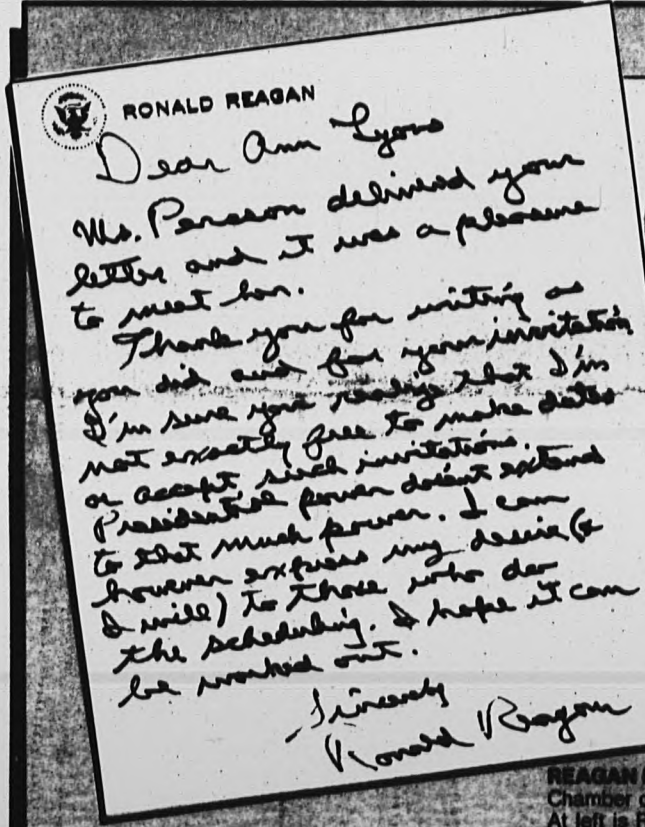 RONALD REAGAN
Dear Ann Lyons
Ms. Pearson delivered your
letter and it was a pleasure
to meet her.
Thank you for writing as
you did and for your invitation
I'm sure you realize that I'm
not exactly free to make dates
or accept such invitations.
Presidential power doesn't extend
to that much power. I can
however express my desire (&
I will) to those who do
the scheduling. I hope it can
be worked out.
Sincerely
Ronald Reagan
REAGAN
Chamber
At left is